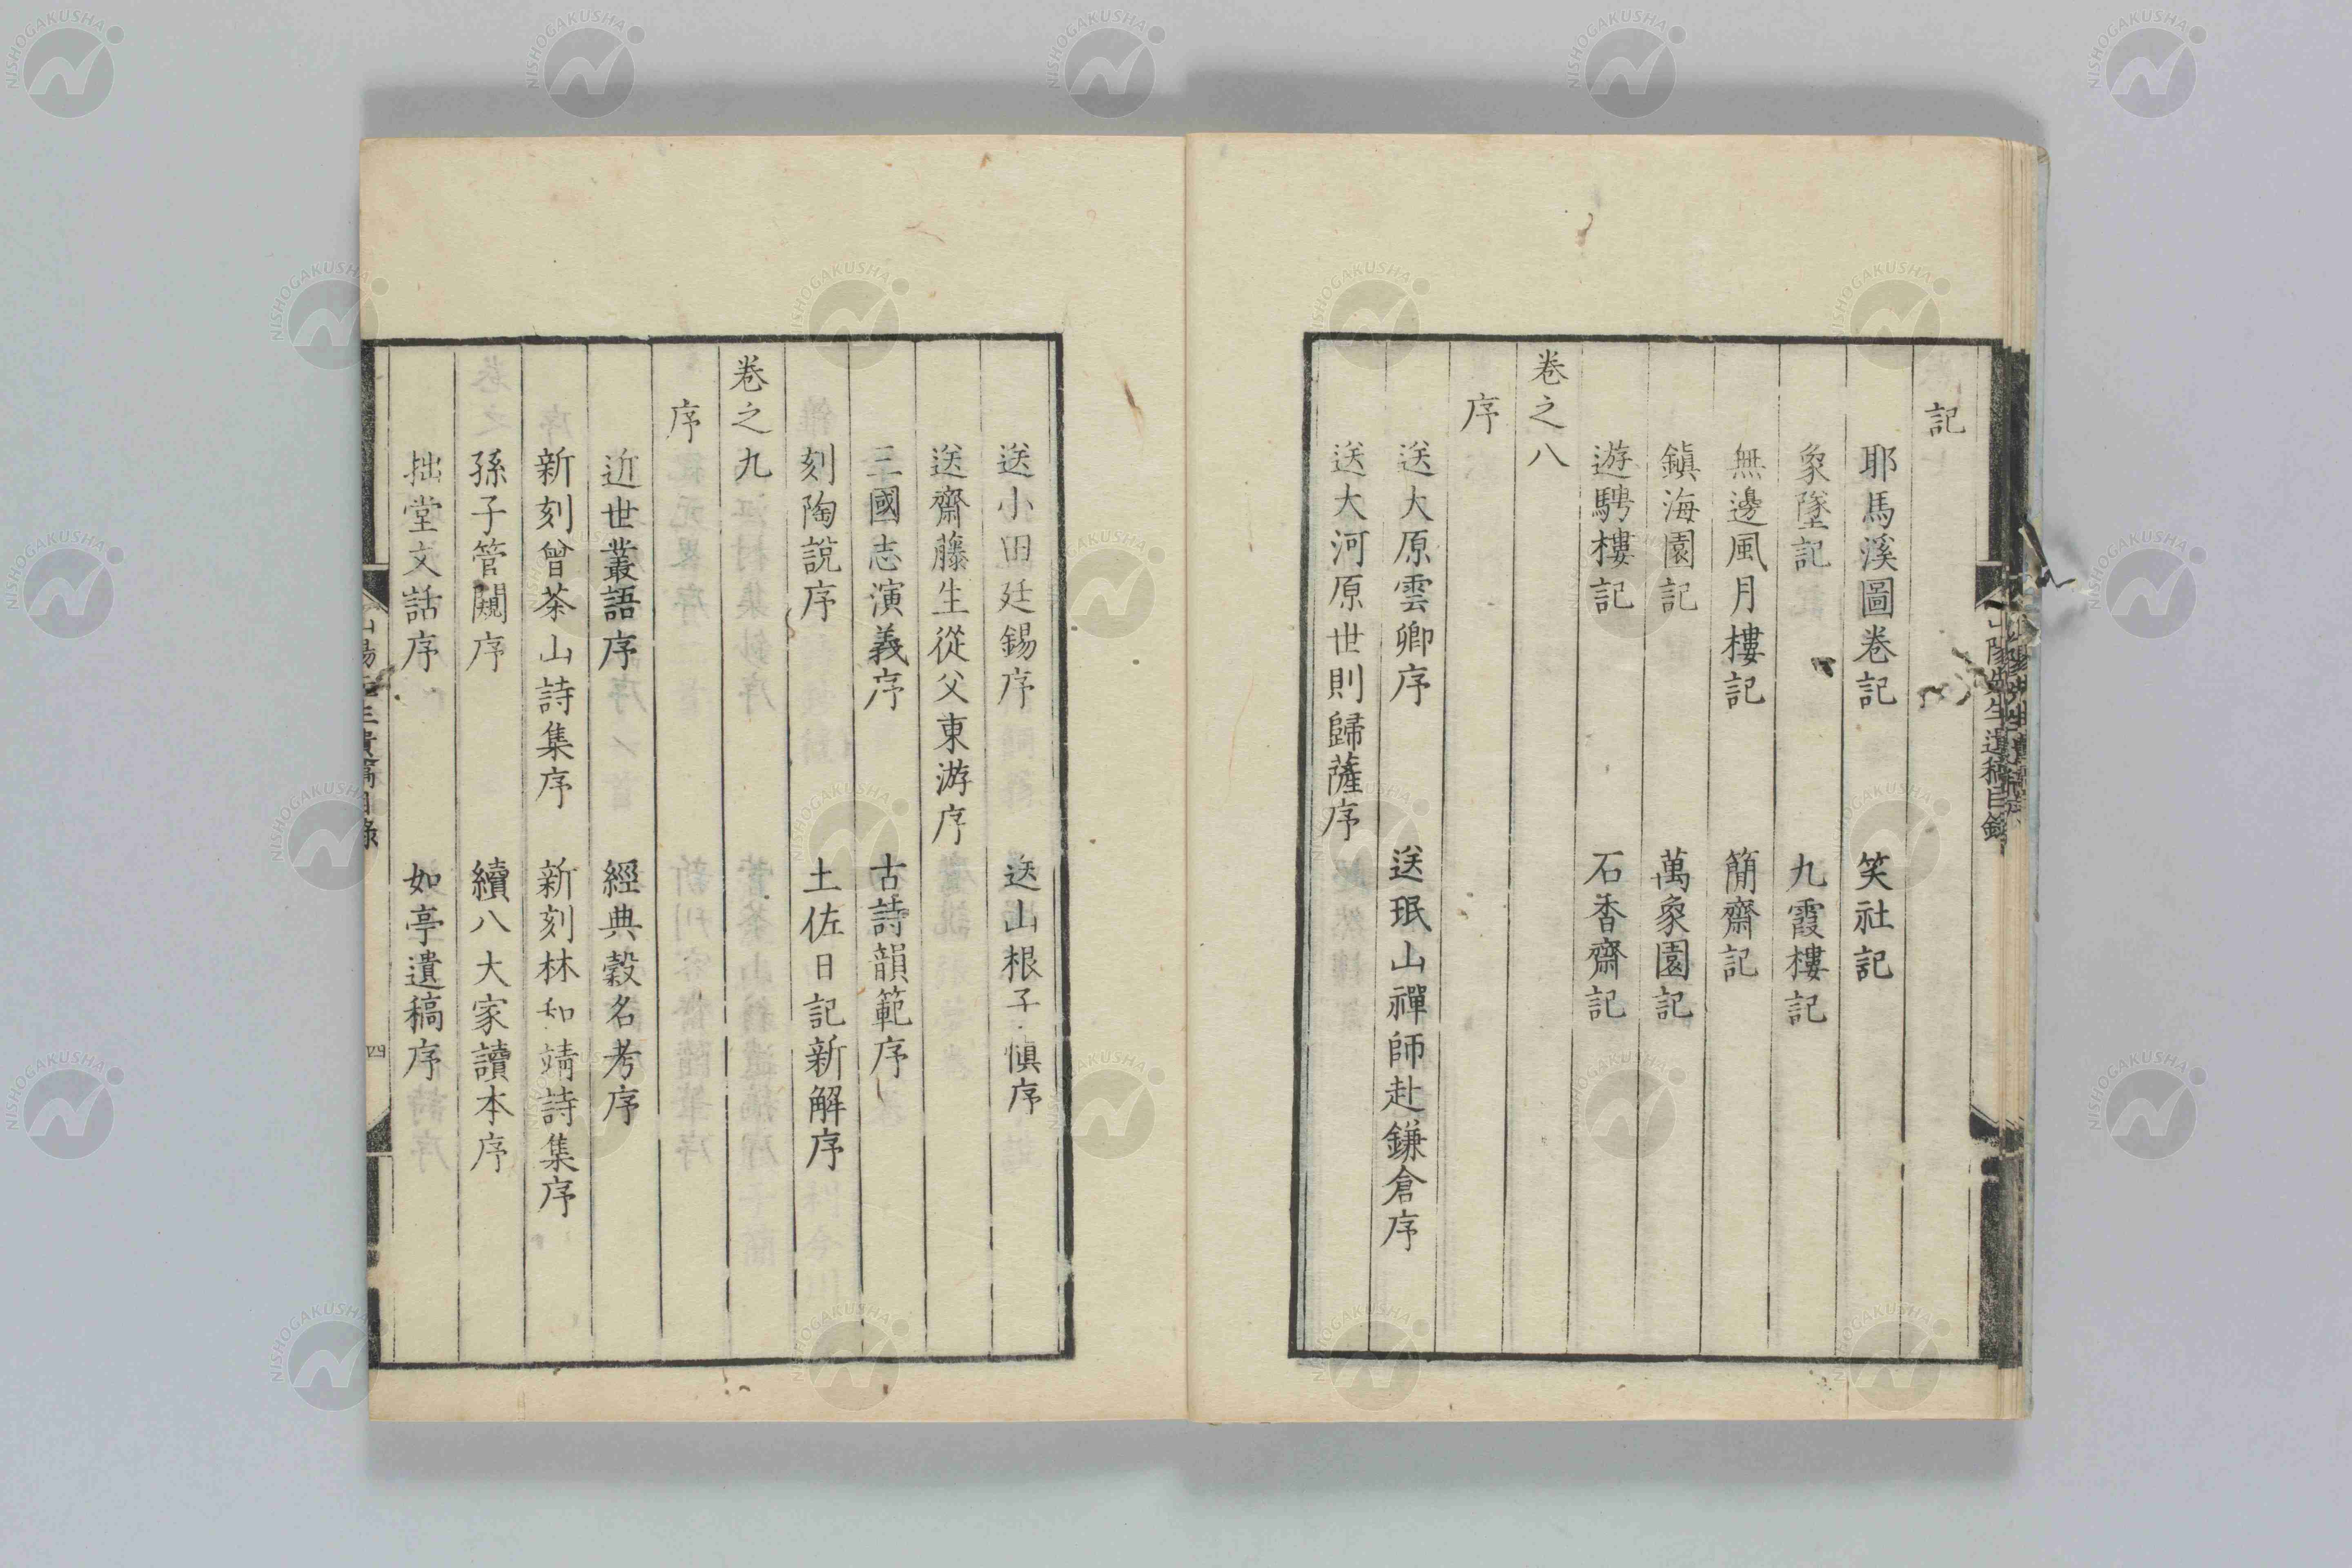 記
耶馬溪圖卷記　笑社記
象墜記　九霞樓記
無邊風月樓記　簡齋記
鎮海園記　萬象園記
遊騁樓記　石香齋記
卷之八
序
送大原雲卿序　送珉山禪師赴鎌倉序
送大河原世則歸薩序
送小田廷錫序　送山根子愼序
送齋藤生從父東游序
三國志演義序　古詩韻範序
刻陶說序　土佐日記新解序
卷之九
序
近世叢語序　經典穀名考序
新刻曾茶山詩集序　新刻林和靖詩集序
孫子管闚序　續八大家讀本序
拙堂文話序　如亭遺稿序
NISHOGAKUSHA